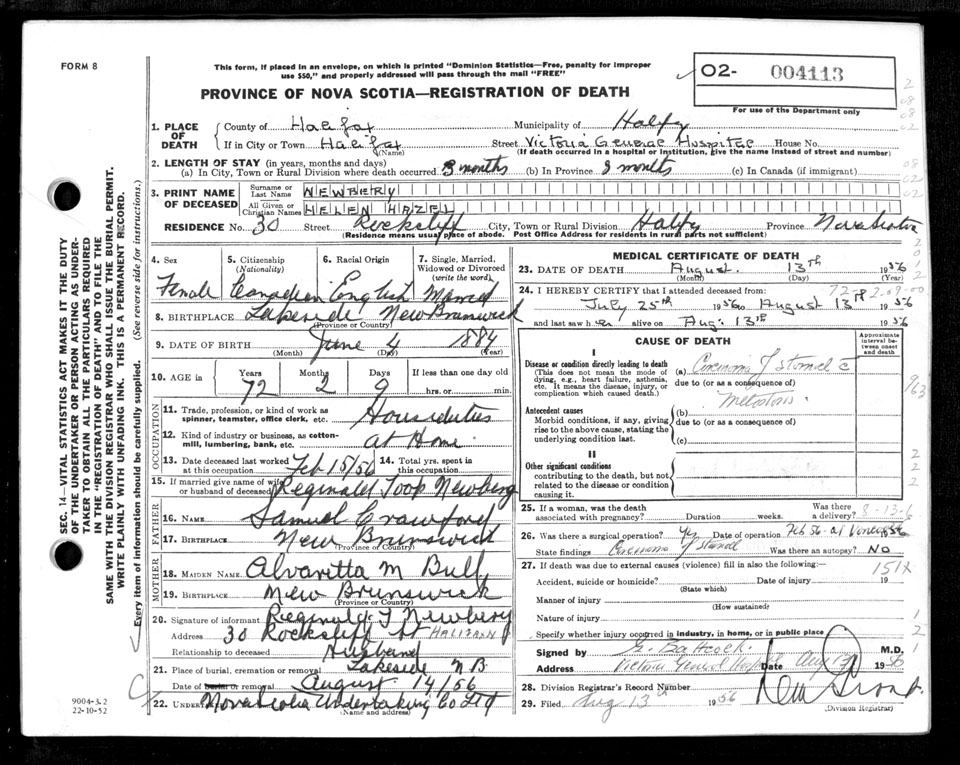 FORM 8
This form, if placed in an envelope, on which is printed "Dominion Statistics—Free, penalty for improper
use $50," and properly addressed will pass through the mail "FREE"
PROVINCE OF NOVA SCOTIA—REGISTRATION OF DEATH
O2- 004113
For use of the Department only
1. PLACE OF DEATH County of Halifax Municipality of Halfx
If in City or Town Halifax Street Victoria General Hospital House No.
(Name) (If death occurred in a hospital or institution, give the name instead of street and number)
2. LENGTH OF STAY (in years, months and days)
(a) In City, Town or Rural Division where death occurred 8 months (b) In Province 8 months (c) In Canada (if immigrant)
3. PRINT NAME OF DECEASED Surname or Last Name NEWBERY
All Given or Christian Names HELEN HAZEL
RESIDENCE No. 30 Street Rockcliff City, Town or Rural Division Halfx Province Nova Scotia
(Residence means usual place of abode. Post Office Address for residents in rural parts not sufficient)
4. Sex 5. Citizenship (Nationality) 6. Racial Origin 7. Single, Married, Widowed or Divorced (write the word)
Female Canadian English Married
8. BIRTHPLACE Lakeside New Brunswick
(Province or Country)
9. DATE OF BIRTH June 4 1884
(Month) (Day) (Year)
10. AGE in Years Months Days If less than one day old
72 2 9 hrs. or min.
OCCUPATION
11. Trade, profession, or kind of work as spinner, teamster, office clerk, etc. Houseduties
12. Kind of industry or business, as cotton-mill, lumbering, bank, etc. at Home
13. Date deceased last worked at this occupation Feb 15/56 14. Total yrs. spent in this occupation
15. If married give name of wife or husband of deceased Reginald Toop Newbery
FATHER
16. NAME Samuel Crawford
17. BIRTHPLACE New Brunswick
(Province or Country)
MOTHER
18. MAIDEN NAME Alvaretta M Bull
19. BIRTHPLACE New Brunswick
(Province or Country)
20. Signature of informant Reginald T Newbery
Address 30 Rockcliff St HALIFAX
Relationship to deceased Husband
21. Place of burial, cremation or removal Lakeside N B
Date of burial or removal August 14/56
22. UNDERTAKER Nova Scotia Undertaking Co Ltd
(Name and address)
9004-3.2
22-10-52
SEC. 14—VITAL STATISTICS ACT MAKES IT THE DUTY
OF THE UNDERTAKER OR PERSON ACTING AS UNDER-
TAKER TO OBTAIN ALL THE PARTICULARS REQUIRED
IN THE "REGISTRATION OF DEATH" AND TO FILE THE
SAME WITH THE DIVISION REGISTRAR WHO SHALL ISSUE THE BURIAL PERMIT.
WRITE PLAINLY WITH UNFADING INK. THIS IS A PERMANENT RECORD.
Every item of information should be carefully supplied. (See reverse side for instructions.)
MEDICAL CERTIFICATE OF DEATH
23. DATE OF DEATH August 13th 1956
(Month) (Day) (Year)
24. I HEREBY CERTIFY that I attended deceased from:
July 25th 1956 to August 13th 1956
and last saw her alive on Aug: 13th 1956
CAUSE OF DEATH
Approximate interval between onset and death
I
Disease or condition directly leading to death
(This does not mean the mode of dying, e.g., heart failure, asthenia, etc. It means the disease, injury, or complication which caused death.)
(a) Carcinoma of Stomach c
due to (or as a consequence of)
Antecedent causes
Morbid conditions, if any, giving rise to the above cause, stating the underlying condition last.
(b)
due to (or as a consequence of)
(c)
II
Other significant conditions
contributing to the death, but not related to the disease or condition causing it.
25. If a woman, was the death associated with pregnancy? Duration weeks. Was there a delivery?
26. Was there surgical operation? Yes Date of operation Feb 56
State findings Carcinoma of Stomach Was there an autopsy? No
27. If death was due to external causes (violence) fill in also the following: 151X
Accident, suicide or homicide? Date of injury 19
(State which)
Manner of injury
(How sustained)
Nature of injury
Specify whether injury occurred in industry, in home, or in public place
Signed by M.D.
Address Victoria General Hospital Date Aug 13 1956
28. Division Registrar's Record Number
29. Filed Aug 13th 1956
(Division Registrar)